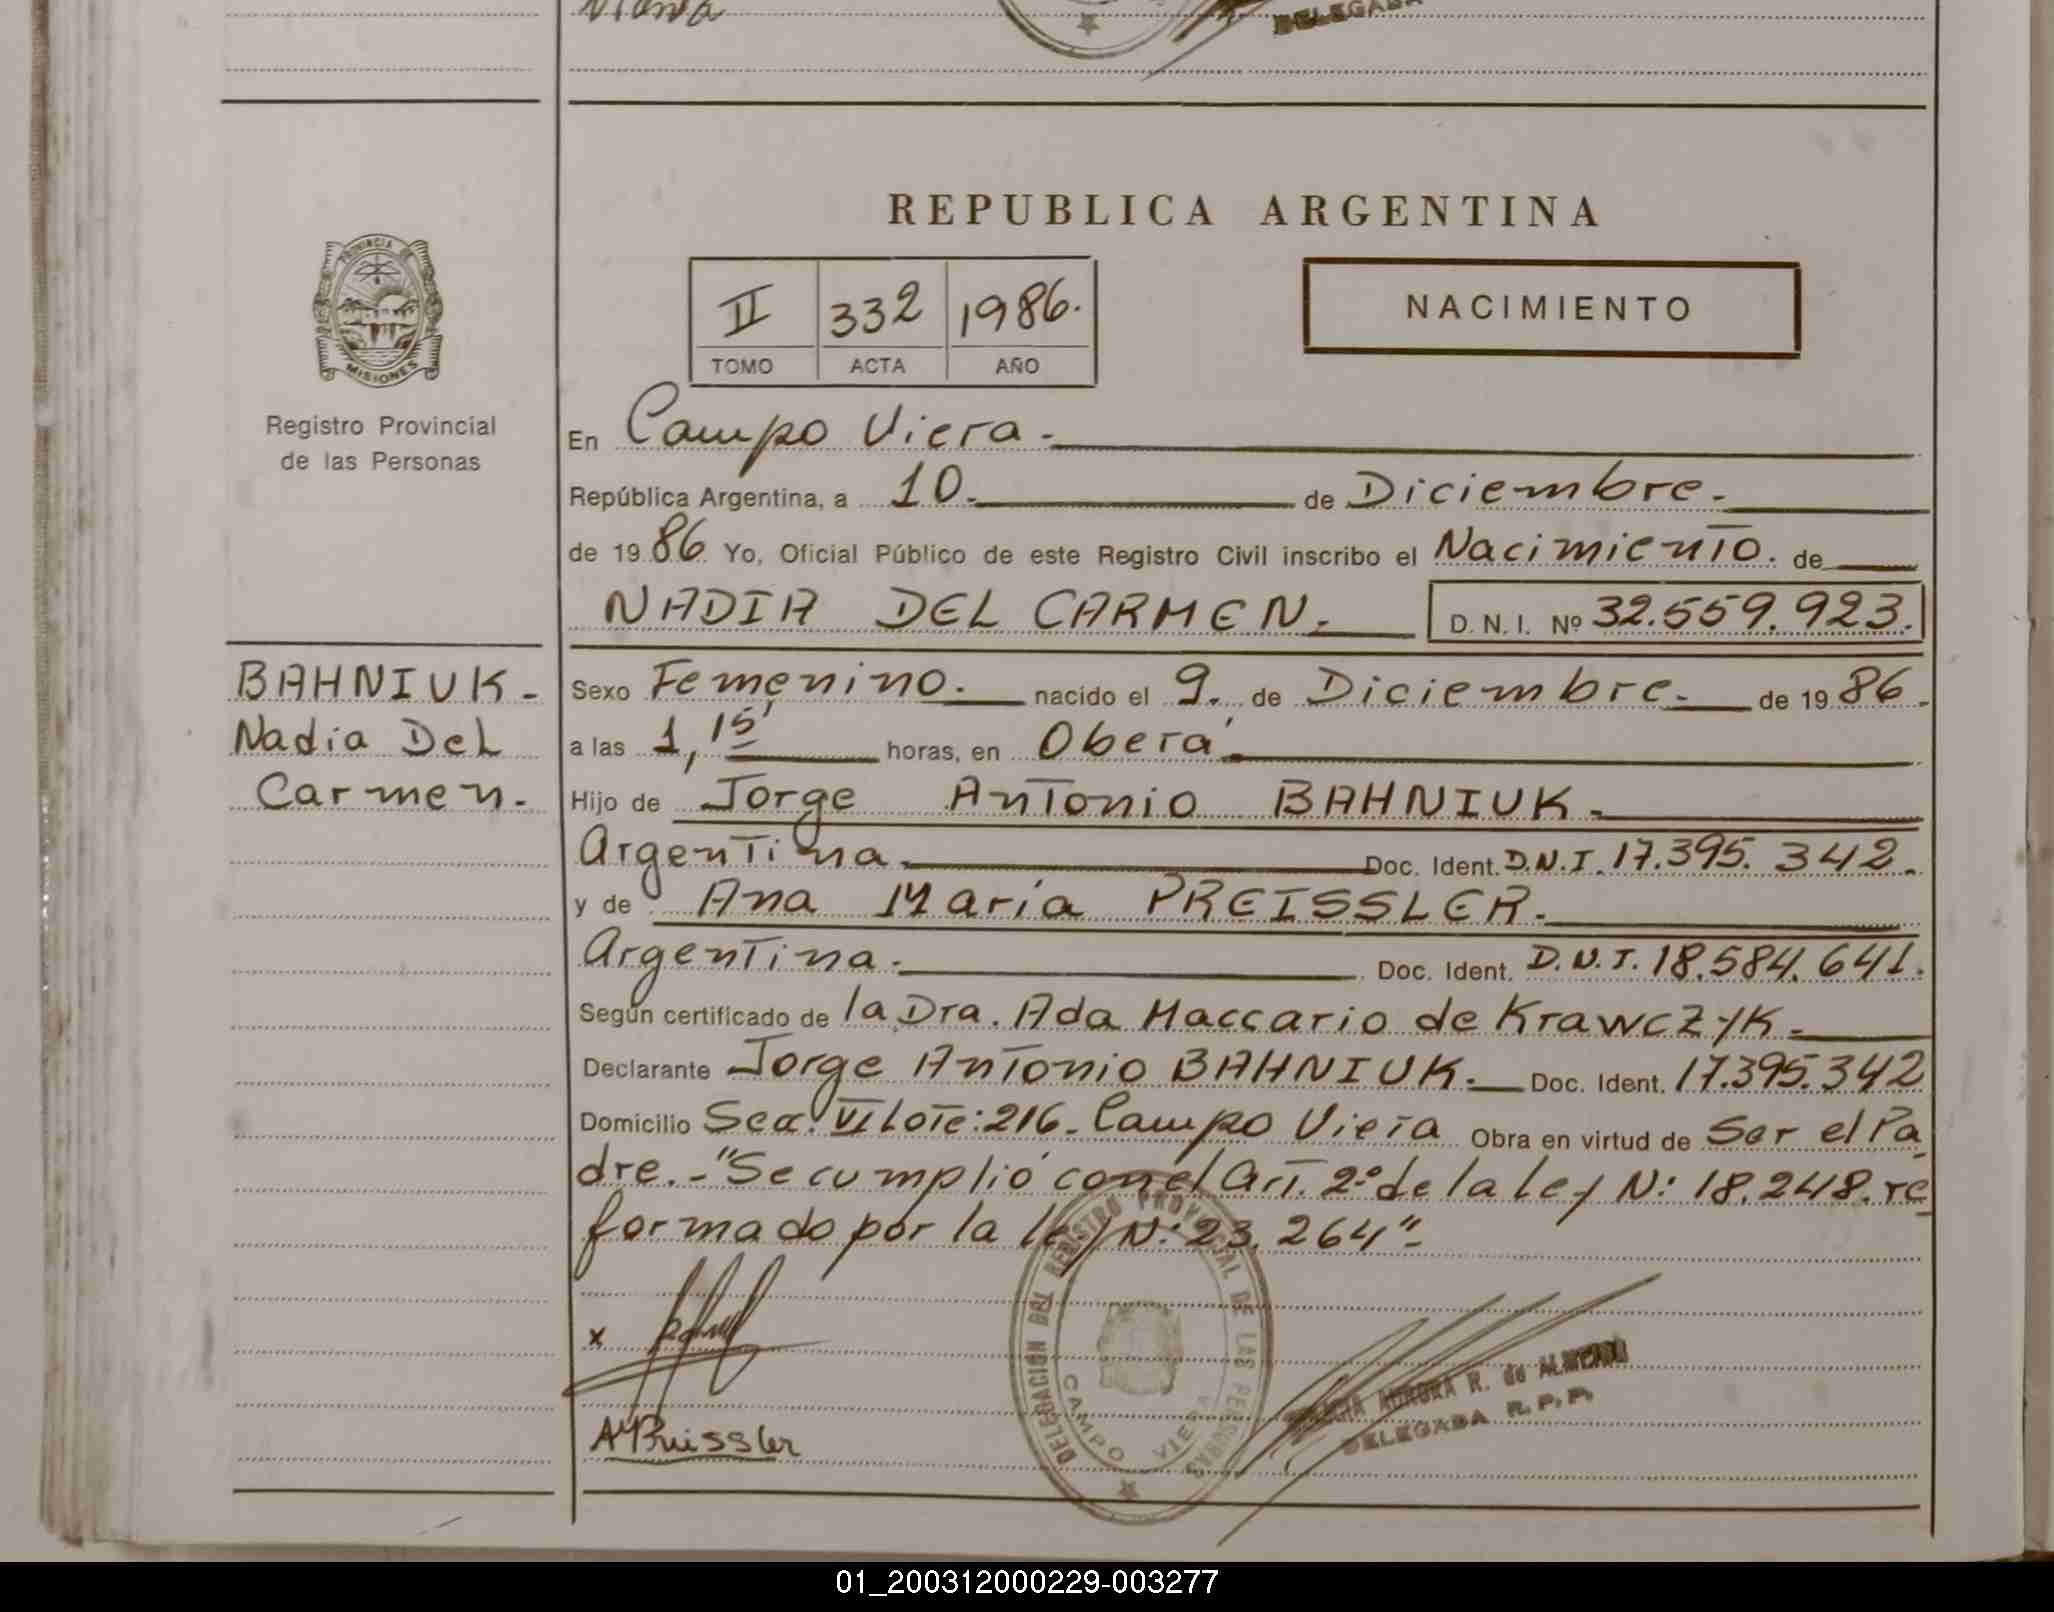 DELEGADA
REPUBLICA ARGENTINA
II 332 1986.
TOMO ACTA AÑO
NACIMIENTO
PROVINCIA DE
MISIONES
Registro Provincial
de las Personas
En Campo Viera.-
República Argentina, a 10. de Diciembre.-
de 1986 Yo, Oficial Público de este Registro Civil inscribo el Nacimiento. de
NADIA DEL CARMEN.- D.N.I. Nº 32.559.923.
BAHNIUK-
Nadia Del
Carmen.-
Sexo Femenino. nacido el 9. de Diciembre.- de 1986.
a las 1,15' horas, en Oberá.
Hijo de Jorge Antonio BAHNIUK.-
Argentina. Doc. Ident. D.N.I. 17.395.342.
y de Ana María PREISSLER.-
Argentina.- Doc. Ident. D.N.I. 18.584.641.
Según certificado de la Dra. Ada Maccario de Krawczyk.-
Declarante Jorge Antonio BAHNIUK.- Doc. Ident. 17.395.342
Domicilio Secc. VI Lote: 216. Campo Viera Obra en virtud de Ser el Pa
dre.-"Se cumplió con el Art. 2º de la ley N: 18.248. re
formado por la ley N: 23.264"-
x
A Preissler
DELEGACIÓN DEL REGISTRO PROVINCIAL DE LAS PERSONAS
CAMPO VIERA
AURORA R. de ALMEIDA
DELEGADA R.P.P.
01_200312000229-003277